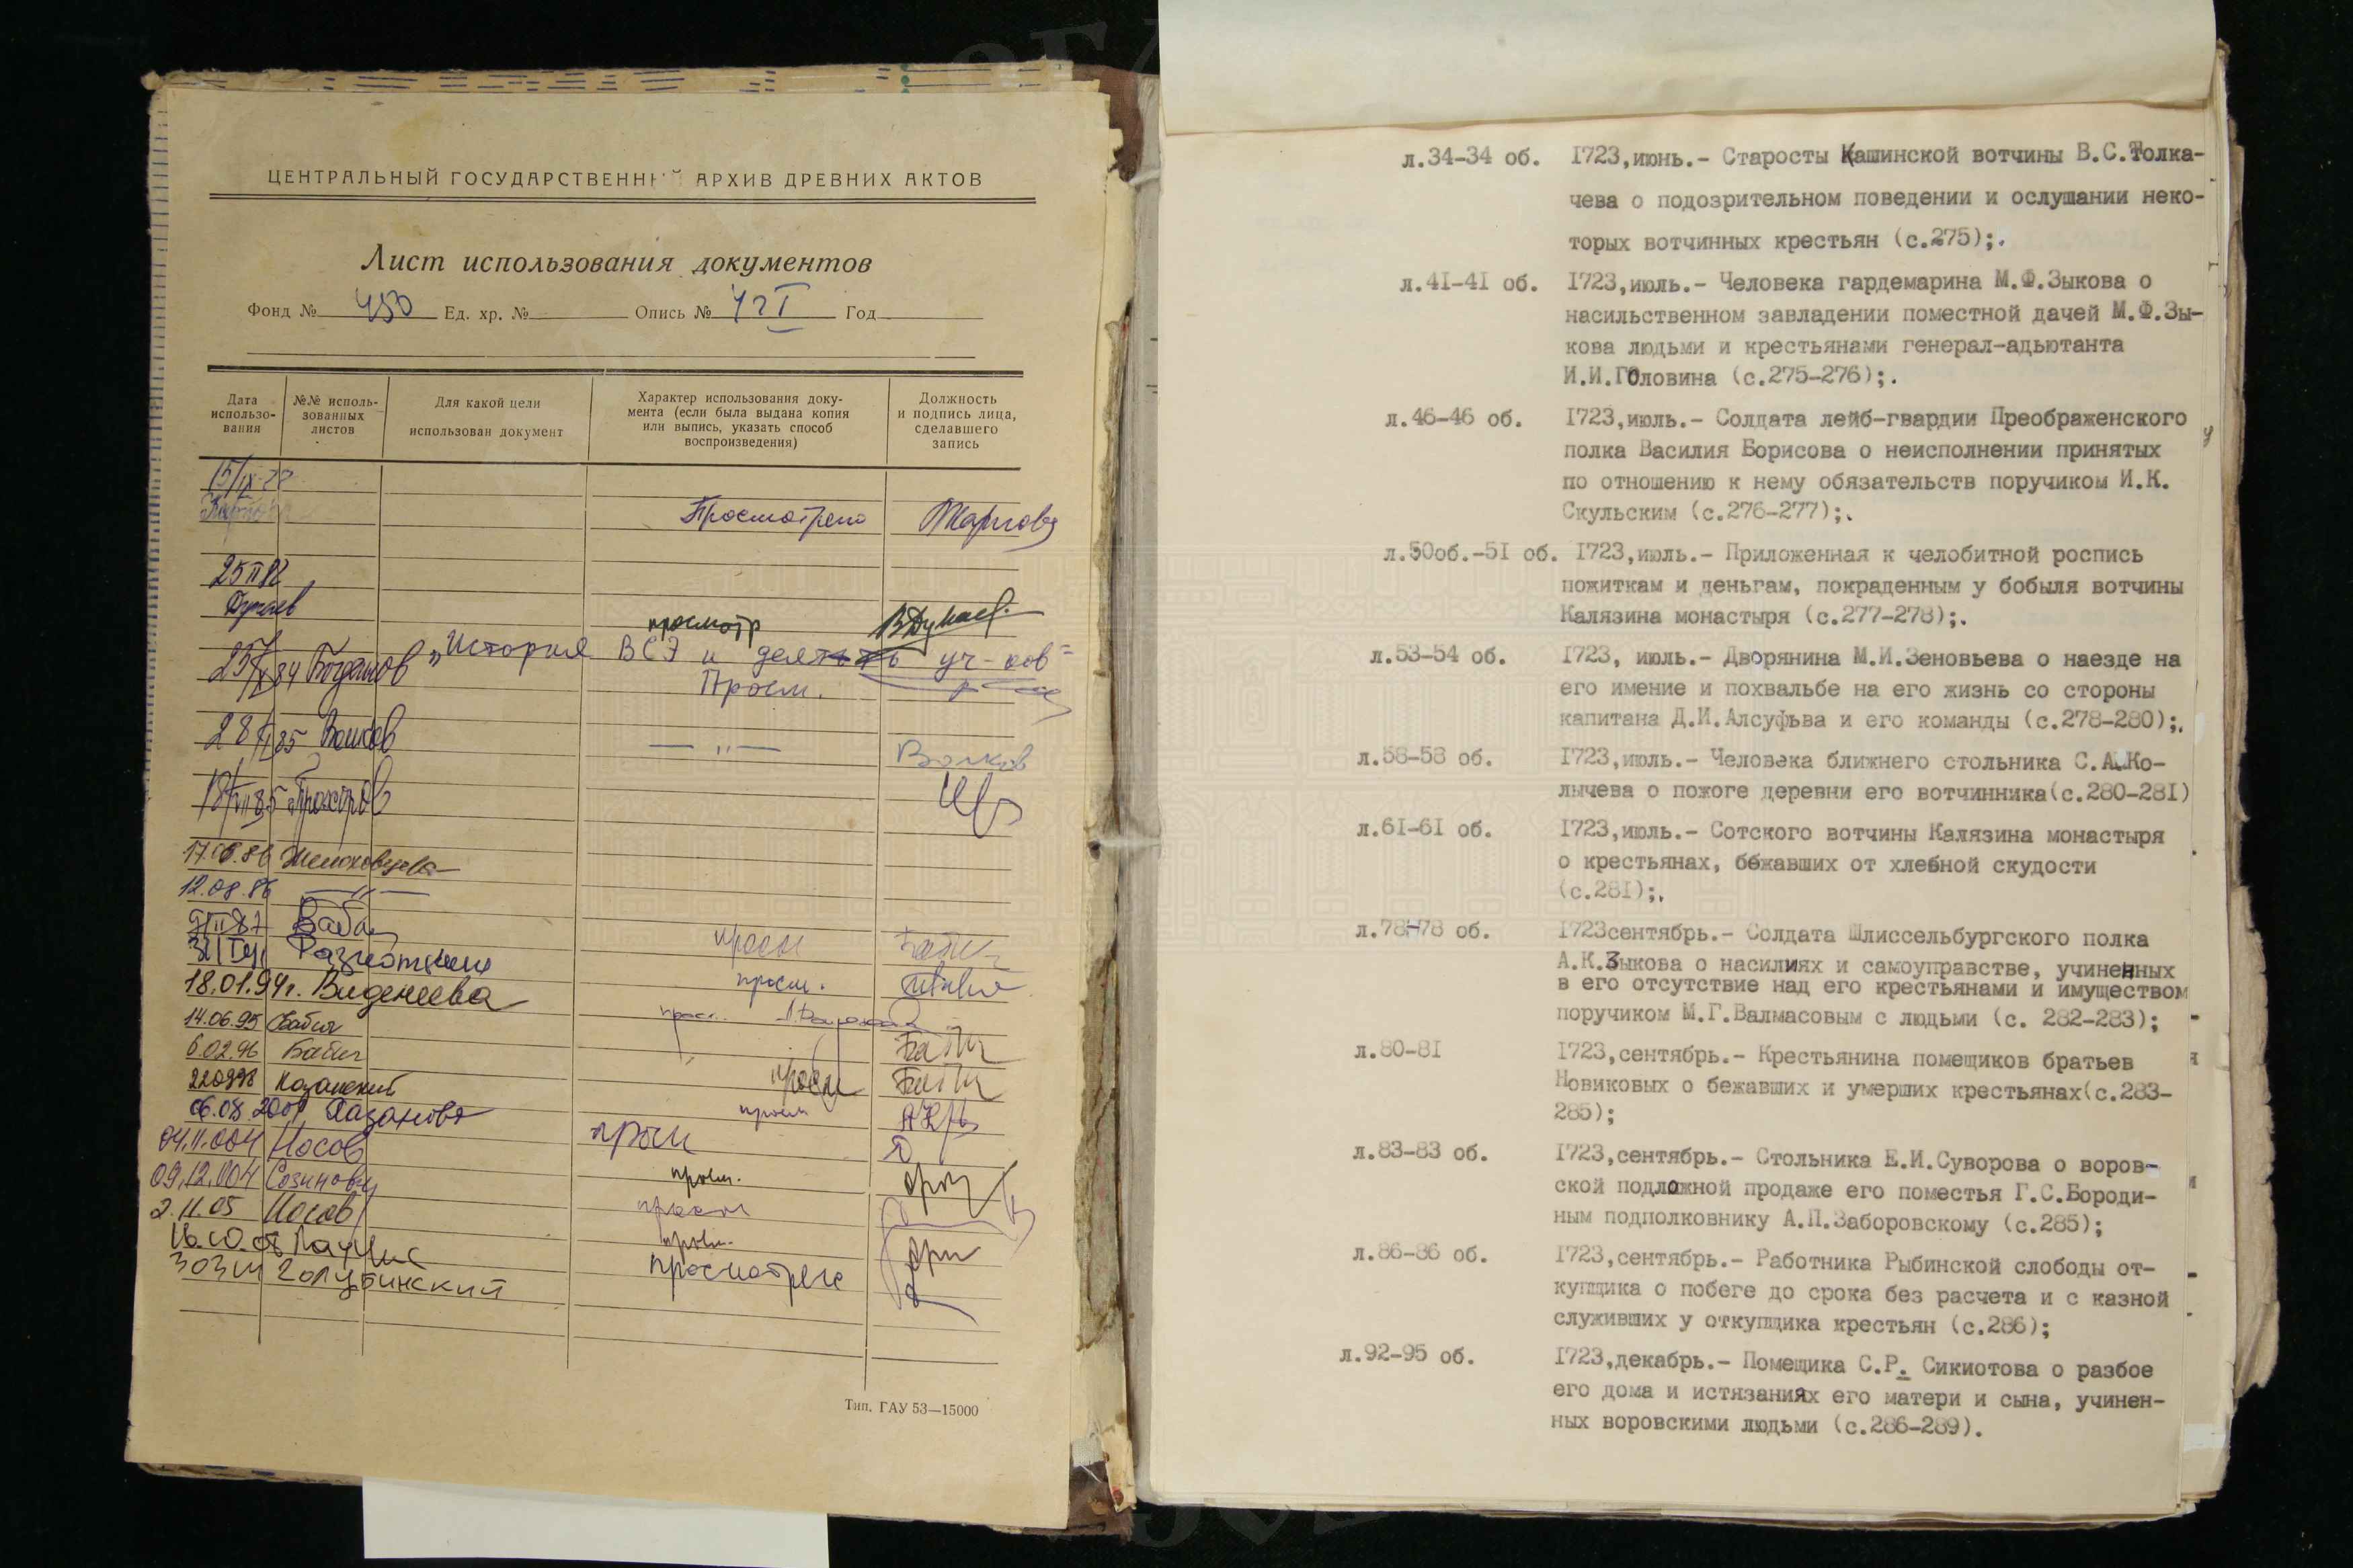 ЦЕНТРАЛЬНЫЙ ГОСУДАРСТВЕНН Й АРХИВ ДРЕВНИХ АКТОВ
Лист использования документов
Фонд № 450 Ед. хр. № Опись № Год
Дата использо-вания
№№ исполь-зованных листов
Для какой цели использован документ
Характер использования доку-мента (если была выдана копия или выпись, указать способ воспроизведения)
Должность и подпись лица, сделавшего запись
15/IX-
Просмотрено
просмотр
„История ВСЭ и уч-ков
Просм.
28 85 Волков
— „ — Волков
17. .86
12.08.86 — „ —
просм
просм.
18.01.94г. Виденеева
14.06.95 Бабич
6.02.96 Бабич
просм
220998 Казанский
просм
06.08.2001 Казакова
04.11.004 Носов просм
09.12.004
просм.
2.11.05 Носов просм
просм.
30311 Голубинский просмотрено
Тип. ГАУ 53—15000
л.34-34 об. I723,июнь.- Старосты Кашинской вотчины В.С.Толка-
чева о подозрительном поведении и ослушании неко-
торых вотчинных крестьян (с.275);.
л.4I-4I об. I723,июль.- Человека гардемарина М.Ф.Зыкова о
насильственном завладении поместной дачей М.Ф.Зы-
кова людьми и крестьянами генерал-адьютанта
И.И.ГОловина (с.275-276);.
л.46-46 об. I723,июль.- Солдата лейб-гвардии Преображенского
полка Василия Борисова о неисполнении принятых
по отношению к нему обязательств поручиком И.К.
Скульским (с.276-277);.
л.50об.-5I об. I723,июль.- Приложенная к челобитной роспись
пожиткам и деньгам, покраденным у бобыля вотчины
Калязина монастыря (с.277-278);.
л.53-54 об. I723, июль.- Дворянина М.И.Зеновьева о наезде на
его имение и похвальбе на его жизнь со стороны
капитана Д.И.Алсуфьва и его команды (с.278-280);.
л.58-58 об. I723,июль.- Человека ближнего стольника С.А.Ко-
лычева о пожоге деревни его вотчинника(с.280-28I)
л.6I-6I об. I723,июль.- Сотского вотчины Калязина монастыря
о крестьянах, бежавших от хлебной скудости
(с.28I);.
л.78-78 об. I723сентябрь.- Солдата Шлиссельбургского полка
А.К.Зыкова о насилиях и самоуправстве, учиненных
в его отсутствие над его крестьянами и имуществом
поручиком М.Г.Валмасовым с людьми (с. 282-283);
л.80-8I I723,сентябрь.- Крестьянина помещиков братьев
Новиковых о бежавших и умерших крестьянах(с.283-
285);
л.83-83 об. I723,сентябрь.- Стольника Е.И.Суворова о воров-
ской подложной продаже его поместья Г.С.Бороди-
ным подполковнику А.П.Заборовскому (с.285);
л.86-86 об. I723,сентябрь.- Работника Рыбинской слободы от-
купщика о побеге до срока без расчета и с казной
служивших у откупщика крестьян (с.286);
л.92-95 об. I723,декабрь.- Помещика С.Р. Сикиотова о разбое
его дома и истязаниях его матери и сына, учинен-
ных воровскими людьми (с.286-289).